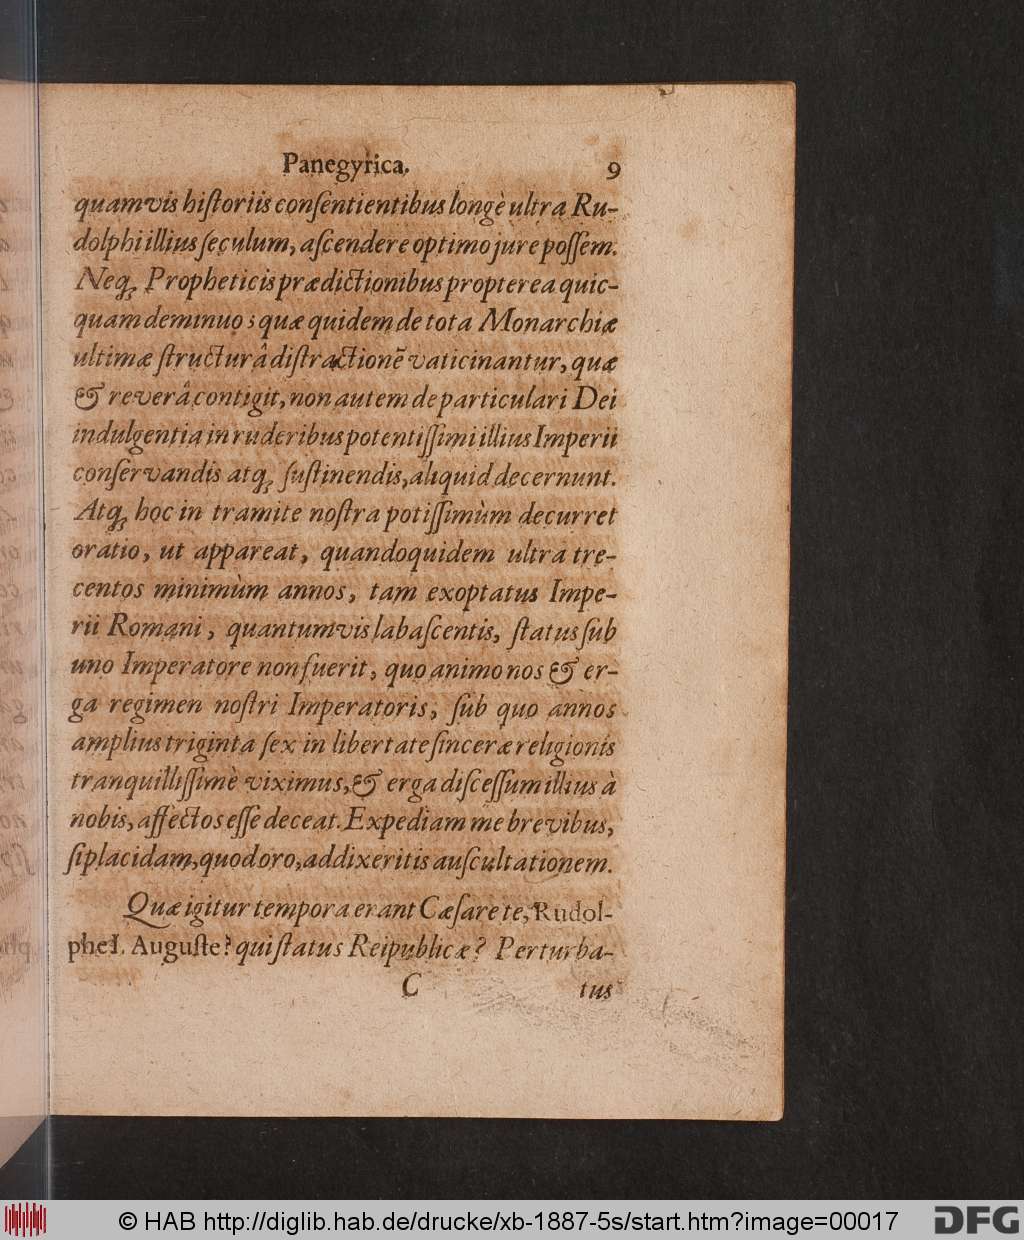 Panegyrica. 9
quamvis hiſtoriis conſentientibus longè ultra Ru-
dolphi illius ſeculum, aſcendere optimo jure poſſem.
Neqꝫ Propheticis prædictionibus propterea quic-
quam deminuo; quæ quidem de tota Monarchiæ
ultimæ ſtructurâ diſtractionē vaticinantur, quæ
& reverâ contigit, non autem de particulari Dei
indulgentia in ruderibus potentiſſimi illius Imperii
conſervandis atqꝫ ſuſtinendis, aliquid decernunt.
Atqꝫ hoc in tramite noſtra potiſſimùm decurret
oratio, ut appareat, quandoquidem ultra tre-
centos minimùm annos, tam exoptatus Impe-
rii Romani, quantumvis labaſcentis, ſtatus ſub
uno Imperatore non fuerit, quo animo nos & er-
ga regimen noſtri Imperatoris, ſub quo annos
amplius triginta ſex in libertate ſinceræ religionis
tranquilliſſimè viximus, & erga diſceſſum illius à
nobis, affectos eſſe deceat. Expediam me brevibus,
ſi placidam, quod oro, addixeritis auſcultationem.
Quæ igitur tempora erant Cæſare te, Rudol-
phe I. Auguſte? qui ſtatus Reipublicæ? Perturba-
C tus
© HAB http://diglib.hab.de/drucke/xb-1887-5s/start.htm?image=00017 DFG